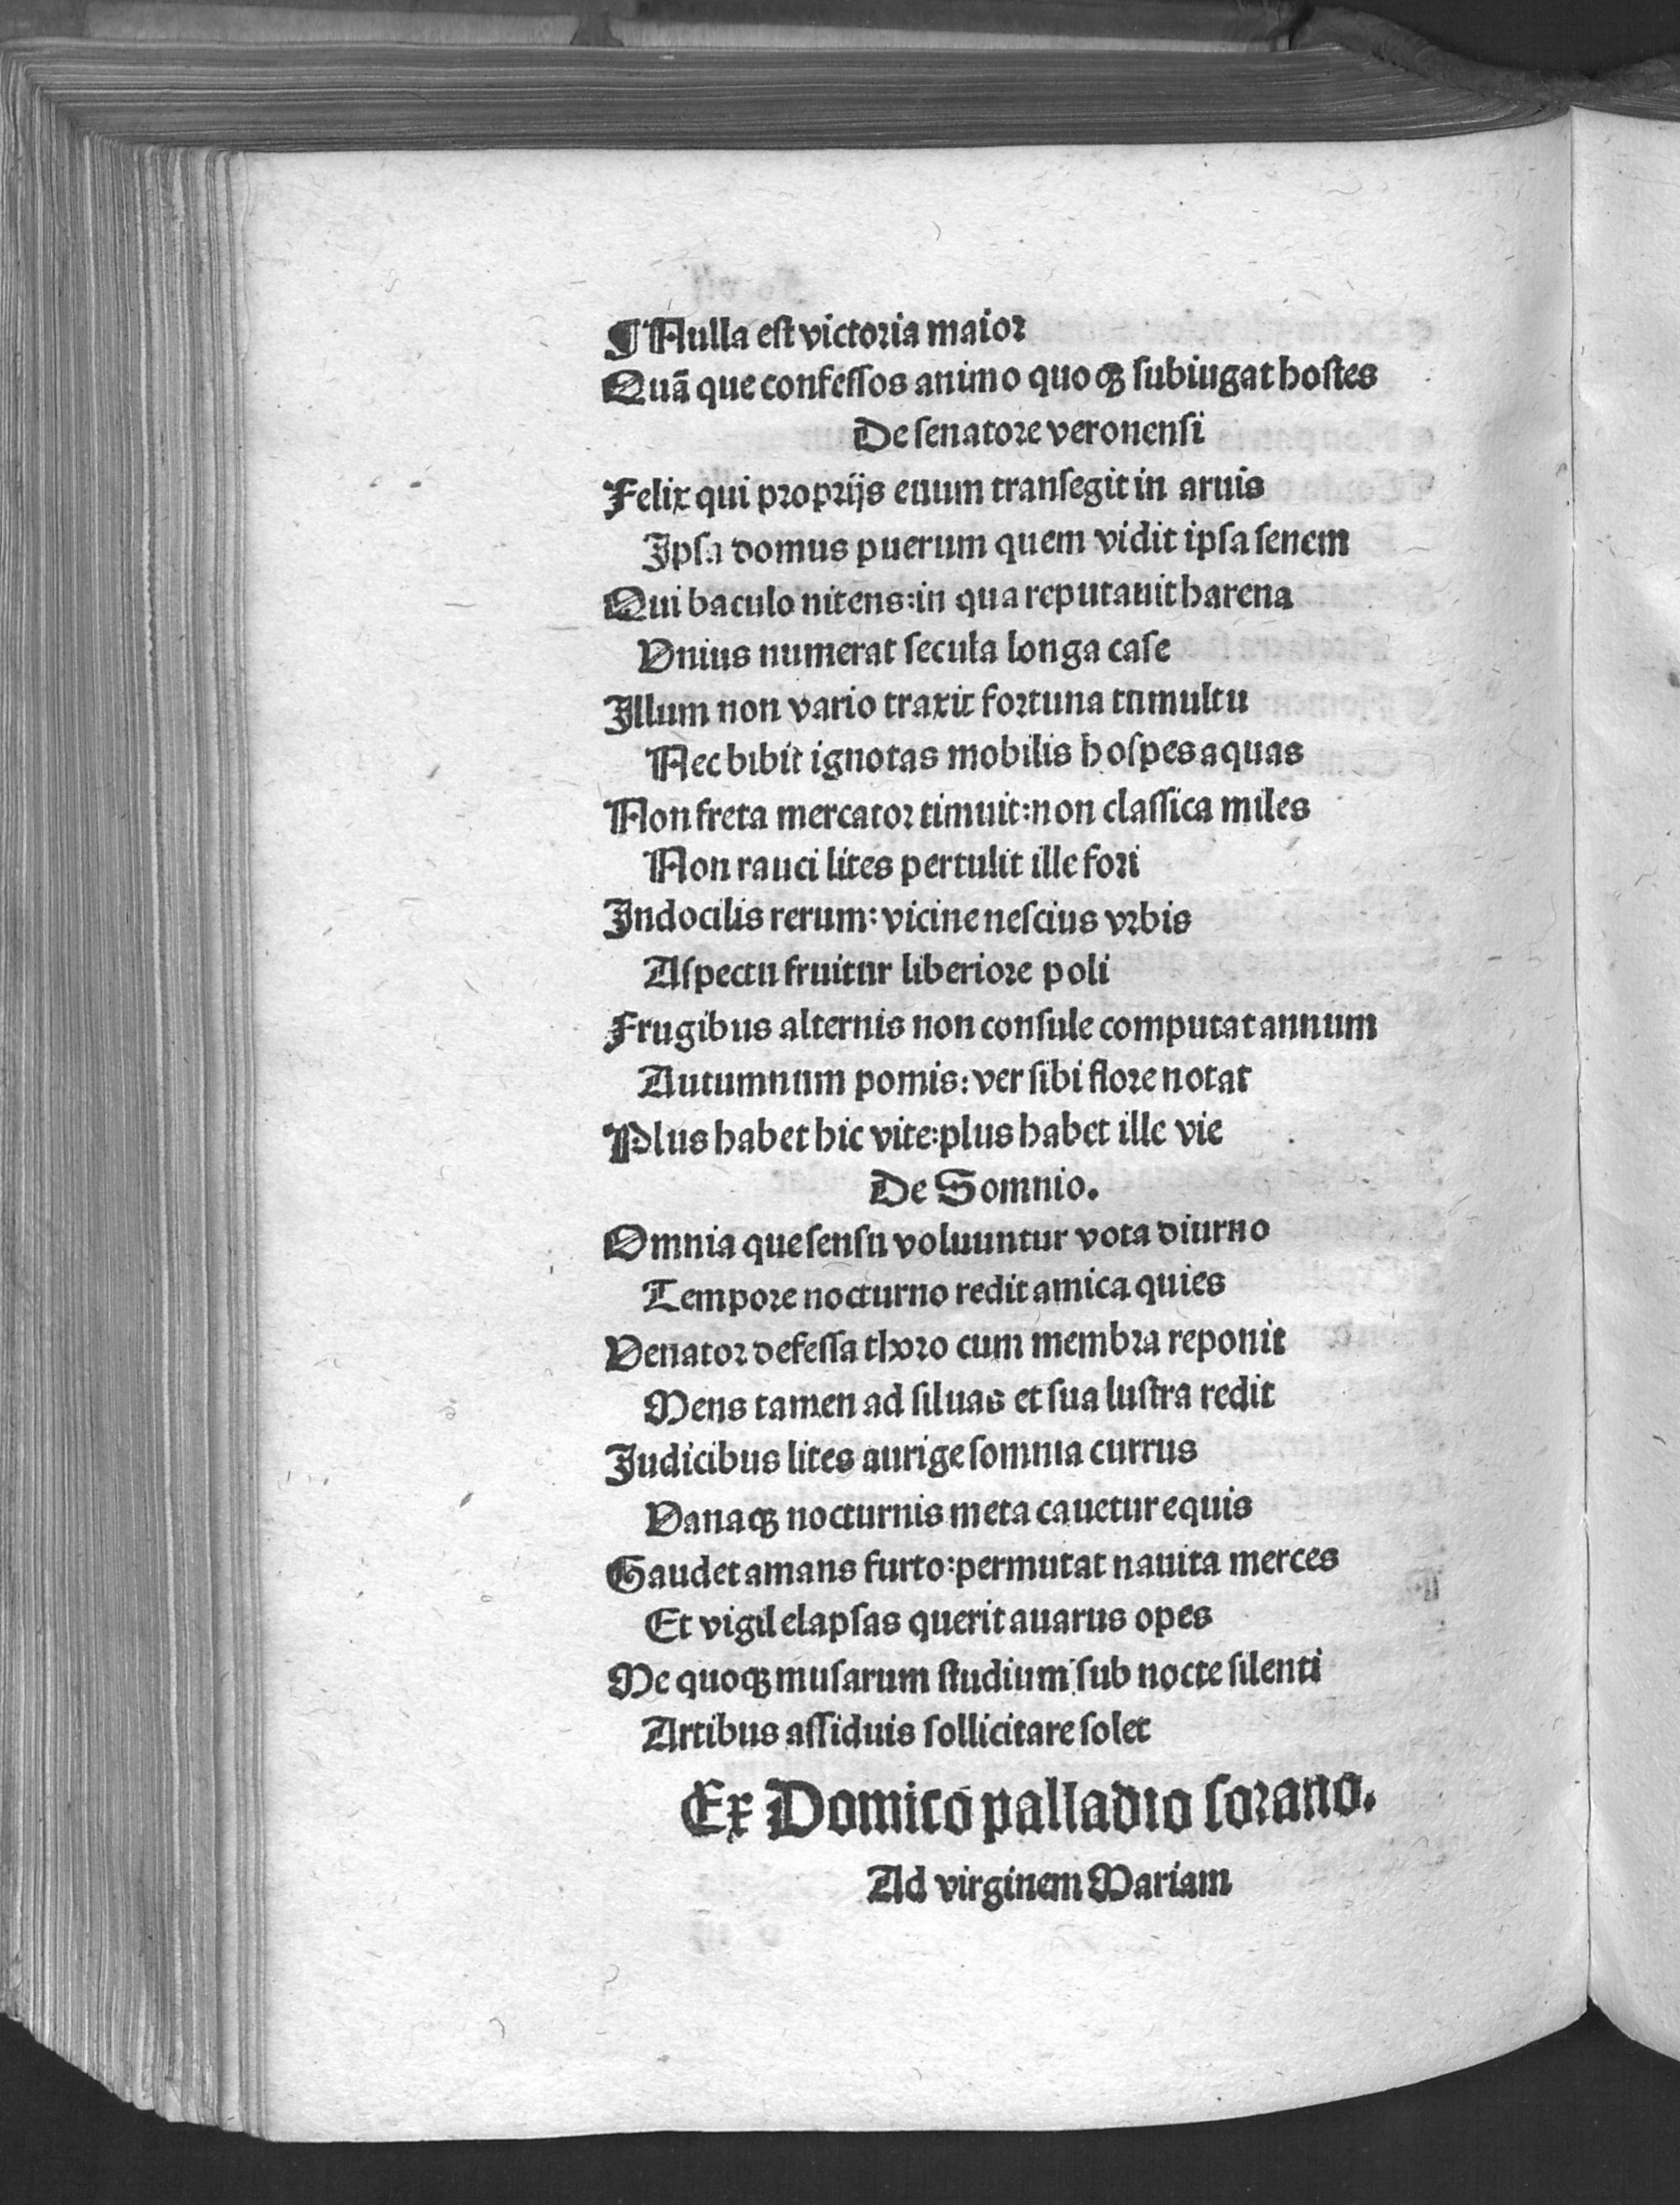 ¶ Nulla est victoria maior
Quā que confessos animo quoqꝫ subiugat hostes
De senatore veronensi
Felix qui proprijs euum transegit in aruis
Ipsa domus puerum quem vidit ipsa senem
Qui baculo nitens:in qua reputauit harena
Vnius numerat secula longa case
Illum non vario traxit fortuna tumultu
Nec bibit ignotas mobilis hospes aquas
Non freta mercator timuit:non classica miles
Non rauci lites pertulit ille fori
Indocilis rerum:vicine nescius vrbis
Aspectu fruitur liberiore poli
Frugibus alternis non consule computat annum
Autumnum pomis:ver sibi flore notat
Plus habet hic vite:plus habet ille vie
De Somnio.
Omnia que sensu voluuntur vota diurno
Tempore nocturno redit amica quies
Venator defessa thoro cum membra reponit
Mens tamen ad siluas et sua lustra redit
Judicibus lites aurige somnia currus
Vanaqꝫ nocturnis meta cauetur equis
Gaudet amans furto:permutat nauita merces
Et vigil elapsas querit auarus opes
Me quoqꝫ musarum studium sub nocte silenti
Artibus assiduis sollicitare solet
Ex Domico palladio sorano.
Ad virginem Mariam